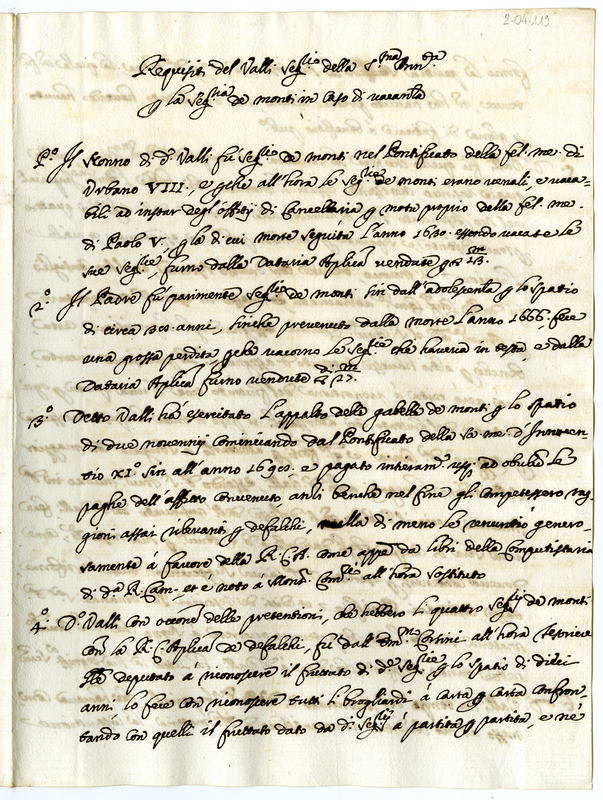 2-04-119
Requisiti del Valli Seg.rio della S.ma Ann.ta
p la Seg.ria de monti in caso di vacanza
P.o Il Nonno di d.o Valli fù Seg.rio de monti nel Pontificato della fel. me. di
Urbano VIII., e pche all'hora le Seg.rie de monti erano venali, e vaca=
bili ad instar degl'offitij di Cancellaria p motu proprio della fel. me.
di Paolo V., p la di cui morte seguita l'anno 1630. essendo vacate le
sue Seg.rie, furno dalla Dataria Aplica vendute p
2.o Il Padre fù parimente Seg.rio de monti sin dall'adolescenza p lo spatio
di circa 30. anni, finche prevenuto dalla morte l'anno 1666. fece
una grossa perdita pche vacorno le Seg.rie che haveva in testa, e dalla
Dataria Aplica furno vendute
3.o Detto Valli ha esercitato l'appalto delle gabelle de monti p lo spatio
di due novennij cominciando dal Pontificato della sa: me. d'Innocen=
tio XI.o sin all'anno e pagato interam.
paghe dell'affitto convenuto, anzi benche nel fine gli competessero rag=
gioni assai rilevanti p defalchi, nulla di meno le renuntiò genero=
samente à favore della R. C. A. come appe da libri della Computistaria
di d.a R. Cam. et è noto à Mons.r Com.rio all'hora sostituto
4.o D.o Valli con occone delle pretentioni, che hebbero li quattro Seg.rij de monti
con la R. C. Aplica de defalchi, fù dall' Corsini all'hora Tesoriere
deputato à riconoscere il fruttato di d.e Seg.rie p lo spatio di dieci
anni, lo fece con riconoscere tutti li brogliardi à carta p carta confron=
tando con quelli il fruttato dato da d.i Seg.rij à partita p partita, e nè